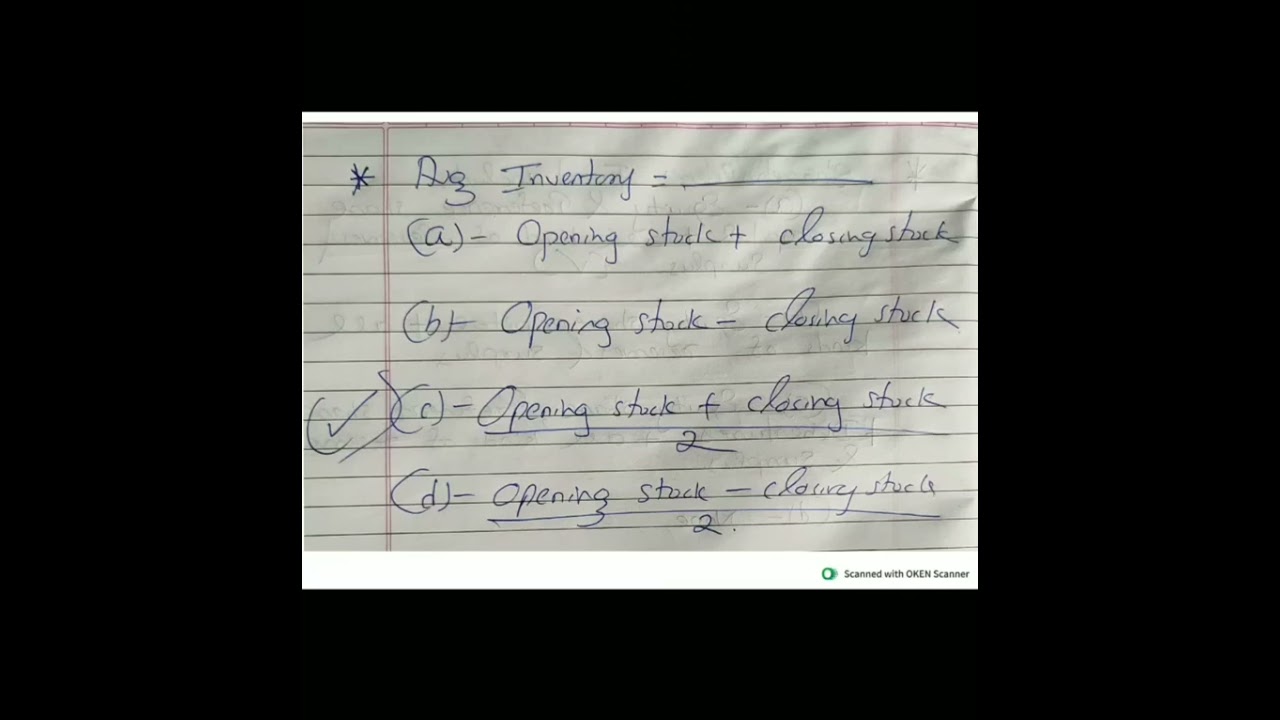 * Avg Inventory = ________
(a) - Opening stock + closing stock
(b) - Opening stock - closing stock
(c) - Opening stock + closing stock
2
(d) - Opening stock - closing stock
2.
Scanned with OKEN Scanner